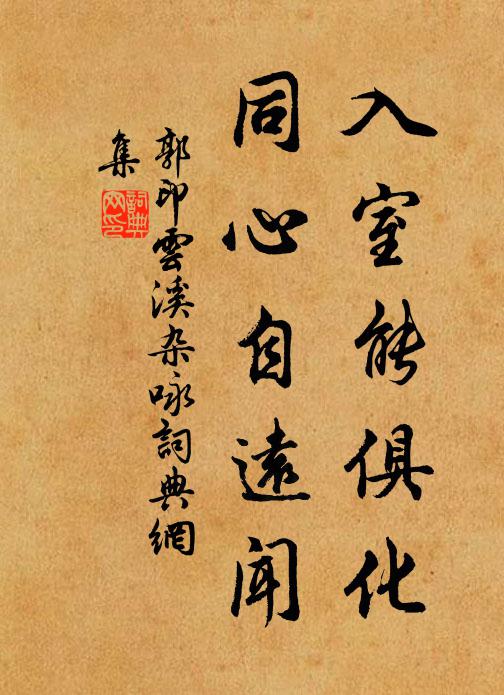 入室能俱化
同心自遠聞
郭印雲溪杂咏詞典網
集
詞典
网印